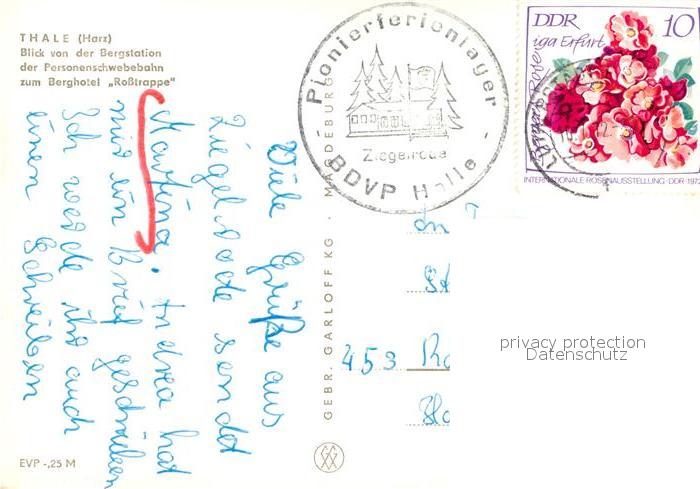 THALE (Harz)
Blick von der Bergstation
der Personenschwebebahn
zum Berghotel „Roßtrappe“
Pionierferienlager
Ziegelrode
BDVP Halle
DDR 10
iga Erfurt
INTERNATIONALE ROSENAUSSTELLUNG · DDR · 1972
Viele Grüße aus
Ziegelrode sendet
Martina. Andrea hat
mir ein Brief geschrieben
Ich werde ihr auch
einen schreiben
GEBR. GARLOFF KG · MAGDEBURG
An
453 Ro
privacy protection
Datenschutz
EVP -,25 M